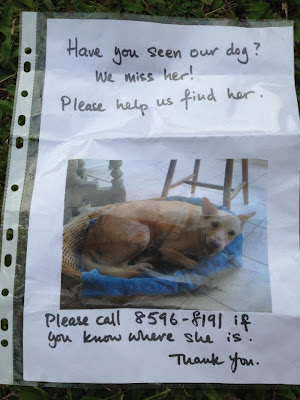 Have you seen our dog?
We miss her!
Please help us find her.
Please call 8596-8191 if
you know where she is.
Thank You.